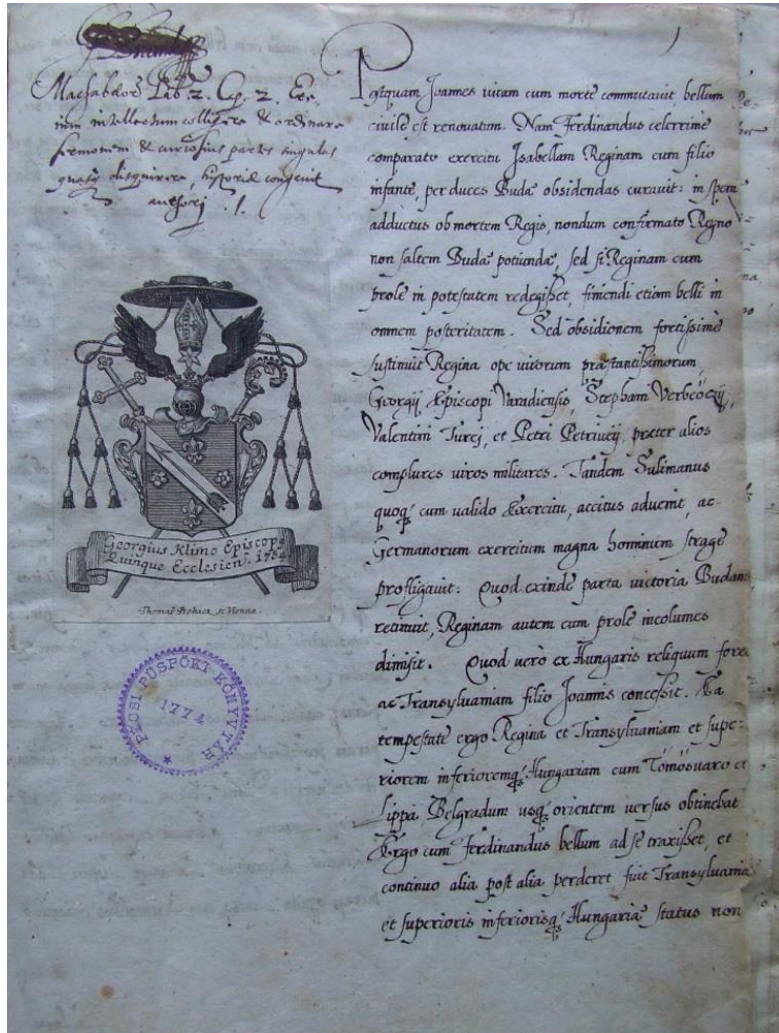 Machabeor Lib. 2. Cp. 2. Ete-
nim intellectum colligere & ordinare
sermonem & curiosius partes singulas
quasq disquirere, historiæ congruit
authori .1.
Georgius Klimo Episcop9
Quinque Ecclesiens. 1754
Thomas Bohacz sc. Viennæ.
PÉCSI PÜSPÖKI KÖNYVTÁR
1774
Postquam Joannes vitam cum morte commutavit bellum
civile est renovatum. Nam Ferdinandus celerrimè
comparato exercitu Isabellam Reginam cum filio
infante, per duces Budæ obsidendas curavit: in spem
adductus ob mortem Regis, nondum confirmato Regno
non saltem Budæ potiundæ, sed si Reginam cum
prole in potestatem redegisset, finiendi etiam belli in
omnem posteritatem. Sed obsidionem fortissimè
sustinuit Regina ope virorum præstantissimorum,
Georgij Episcopi Varadiensis, Stephani Verbeőczij,
Valentini Turcj, et Petri Petrivicij, præter alios
complures viros militares. Tandem Sulimanus
quoq; cum valido Exercitu, accitus advenit, ac
Germanorum exercitum magna hominum strage
profligavit: Quod exinde parta victoria Budam
retinuit, Reginam autem cum prole incolumes
dimisit. Quod verò ex Hungaris reliquum foret
ac Transylvaniam filio Joannis concessit. Ea
tempestate ergo Regina et Transylvaniam et supe-
riorem inferioremq; Hungariam cum Tömösvaro et
Lippa Belgradum usq; orientem versus obtinebat
Ergo cum Ferdinandus bellum ad se traxisset, et
continuo alia post alia perderet, fuit Transylvaniæ
et superioris inferiorisq; Hungariæ status non